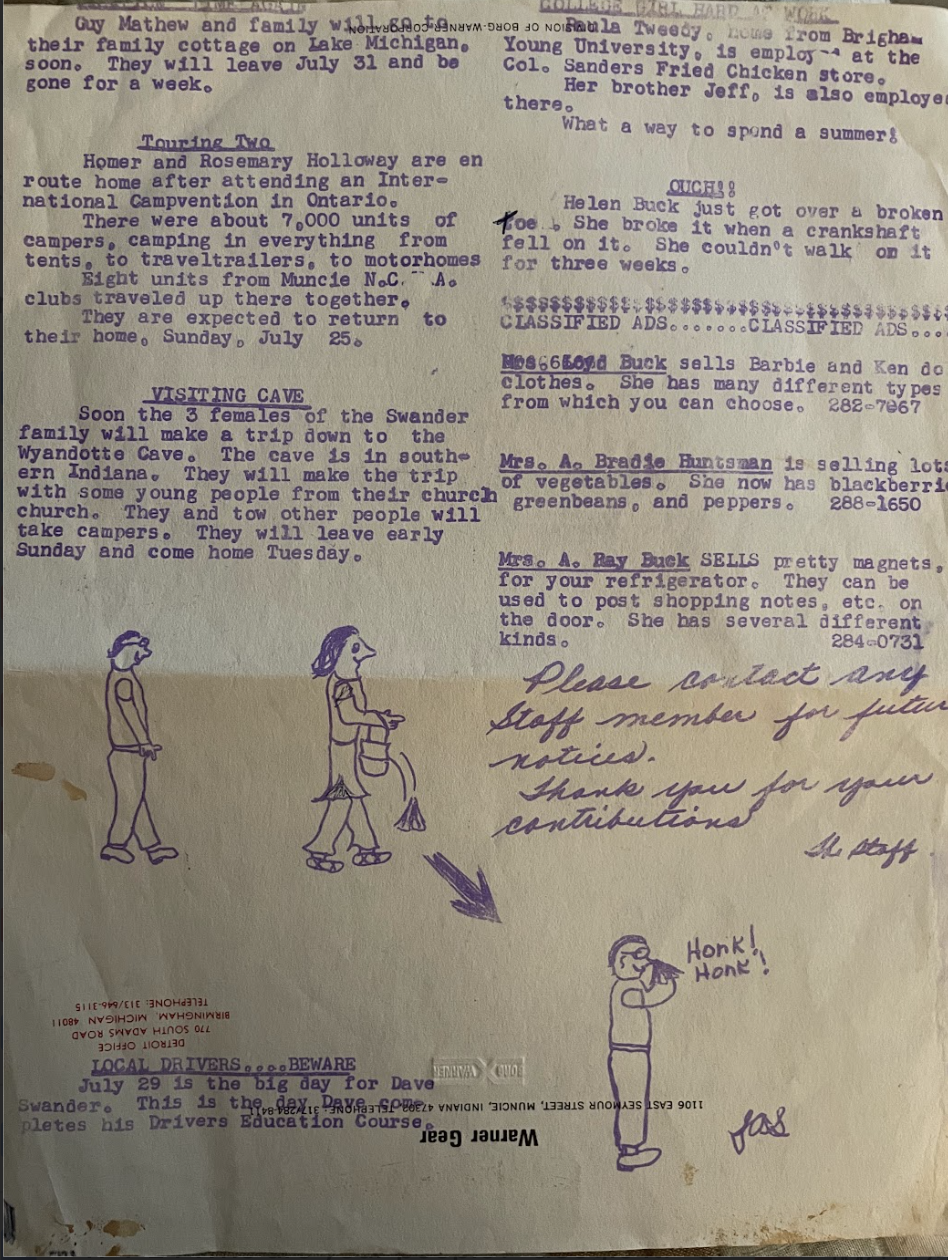 Guy Mathew and family will go to
their family cottage on Lake Michigan.
soon. They will leave July 31 and be
gone for a week.
Touring Two
Homer and Rosemary Holloway are en
route home after attending an Inter-
national Campvention in Ontario.
There were about 7,000 units of
campers, camping in everything from
tents, to traveltrailers, to motorhomes
Eight units from Muncie N.C. A.
clubs traveled up there together.
They are expected to return to
their home, Sunday, July 25.
VISITING CAVE
Soon the 3 females of the Swander
family will make a trip down to the
Wyandotte Cave. The cave is in south-
ern Indiana. They will make the trip
with some young people from their church
church. They and tow other people will
take campers. They will leave early
Sunday and come home Tuesday.
LOCAL DRIVERS....BEWARE
July 29 is the big day for Dave
Swander. This is the day Dave com-
pletes his Drivers Education Course.
COLLEGE GIRL HARD AT WORK
Paula Tweedy, home from Brigham
Young University, is employ at the
Col. Sanders Fried Chicken store.
Her brother Jeff, is also employe
there.
What a way to spend a summer!
OUCH!!
Helen Buck just got over a broken
toe. She broke it when a crankshaft
fell on it. She couldn't walk on it
for three weeks.
$$$$$$$$$$$$$$$$$$$$$$$$$$$$$$$$$$$$
CLASSIFIED ADS.......CLASSIFIED ADS....
Buck sells Barbie and Ken do
clothes. She has many different types
from which you can choose. 282-7967
Mrs. A. Bradie Huntsman is selling lots
of vegetables. She now has blackberri
greenbeans, and peppers. 288-1650
Mrs. A. Ray Buck SELLS pretty magnets,
for your refrigerator. They can be
used to post shopping notes, etc. on
the door. She has several different
kinds. 284-0731
Please contact any
Staff member for futur
notices.
Thank you for your
contributions
The Staff
Honk!
Honk!
JAS
DIVISION OF BORG-WARNER CORPORATION
DETROIT OFFICE
770 SOUTH ADAMS ROAD
BIRMINGHAM, MICHIGAN 48011
TELEPHONE: 313/646-3115
Warner Gear
1106 EAST SEYMOUR STREET, MUNCIE, INDIANA 47302, TELEPHONE: 317/284-8411
BORG WARNER